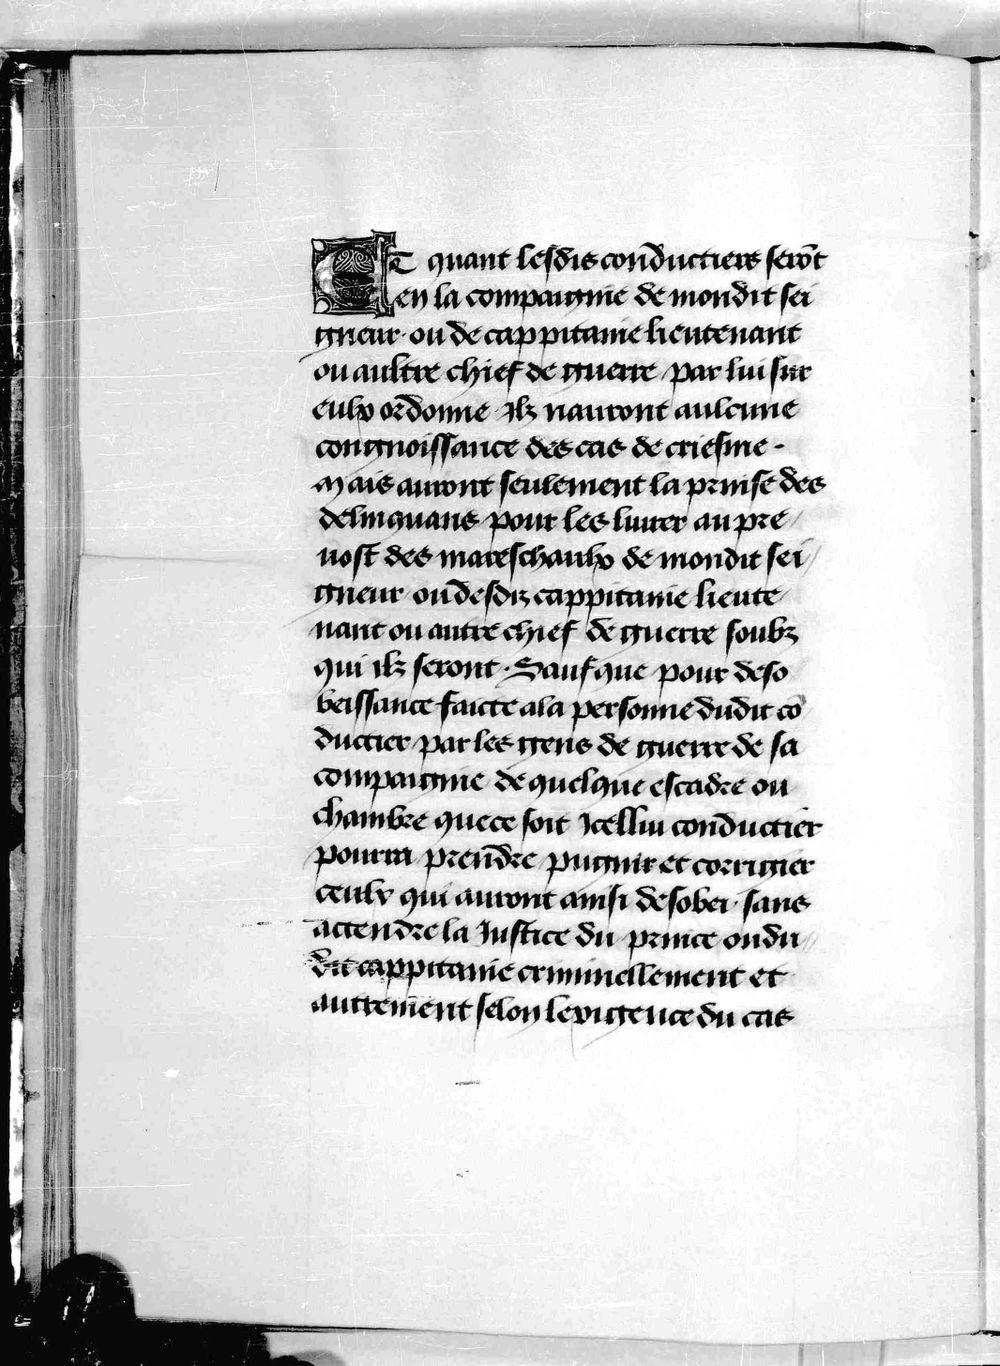 Et quant lesdis conductiers serōt
en la compaignie de mondit sei
gneur ou de cappitaine lieutenant
ou aultre chief de guerre par lui sur
eulx ordonne Ilz nauront aulcune
congnoissance des cas de criesme .
Mais auront seulement la prinse des
delinquans pour les liurer au pre
uost des mareschaulx de mondit sei
gneur ou desdiz cappitaine lieute
nant ou autre chief de guerre soubz
qui ilz seront . Sauf que pour deso
beissance faicte a la personne dudit cō
ductier par les gens de guerre de sa
compaignie de quelque escadre ou
chambre que ce soit Icellui conductier
pourra prendre pugnir et corrigier
ceulx qui auront ainsi desobei sans
attendre la Justice du prince ou du
dit cappitaine criminellement et
autrement selon lexigence du cas